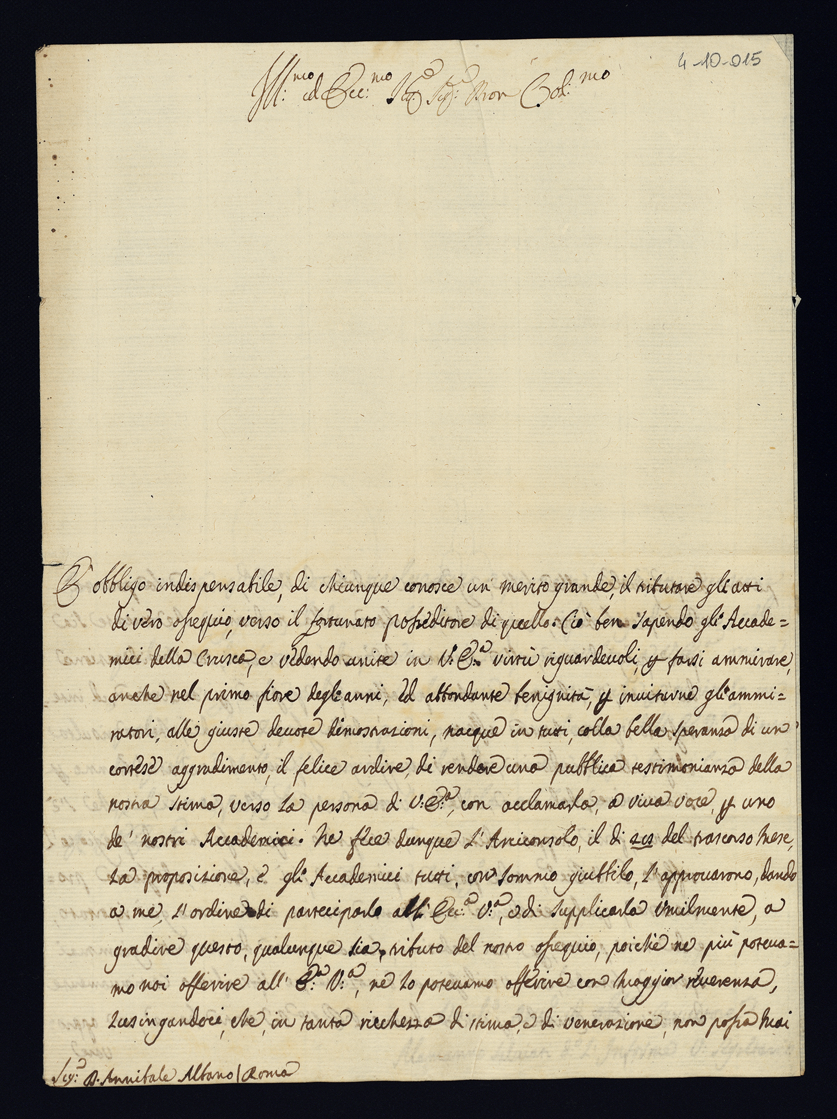 4-10-015
Ill:mo ed Ecc:mo Sig:e Sig:e Pron Col:mo
È obbligo indispensabile, di chiunque conosce un merito grande, il tributare gli atti
di vero ossequio, verso il fortunato posseditore di quello. Ciò ben sapendo gli Accade=
mici della Crusca, e vedendo unite in V: E:a virtù riguardevoli, p farsi ammirare,
anche nel primo fiore degli anni, ed abbondante benignità, p invitarne gli ammi=
ratori, alle giuste devote dimostrazioni, nacque in tutti, colla bella speranza di un
cortese aggradimento, il felice ardire di rendere una pubblica testimonianza della
nostra stima, verso la persona di V: E:a, con acclamarla, a viva voce, p uno
de' nostri Accademici. Ne fece dunque l'Arciconsolo, il dì del trascorso mese,
la proposizione, e gli Accademici tutti, con sommo giubbilo, l'approvarono, dando
a me, l'ordine di parteciparlo all' Ecc:a V:a, e di supplicarla umilmente, a
gradire questo, qualunque sia, tributo del nostro ossequio, poichè ne più poteva=
mo noi offerire all' E:a V:a, nè lo potevamo offerire con maggior reverenza,
lusingandoci, che, in tanta ricchezza di stima, e di venerazione, non possa mai
Sig:e D. Annibale Albano / Roma